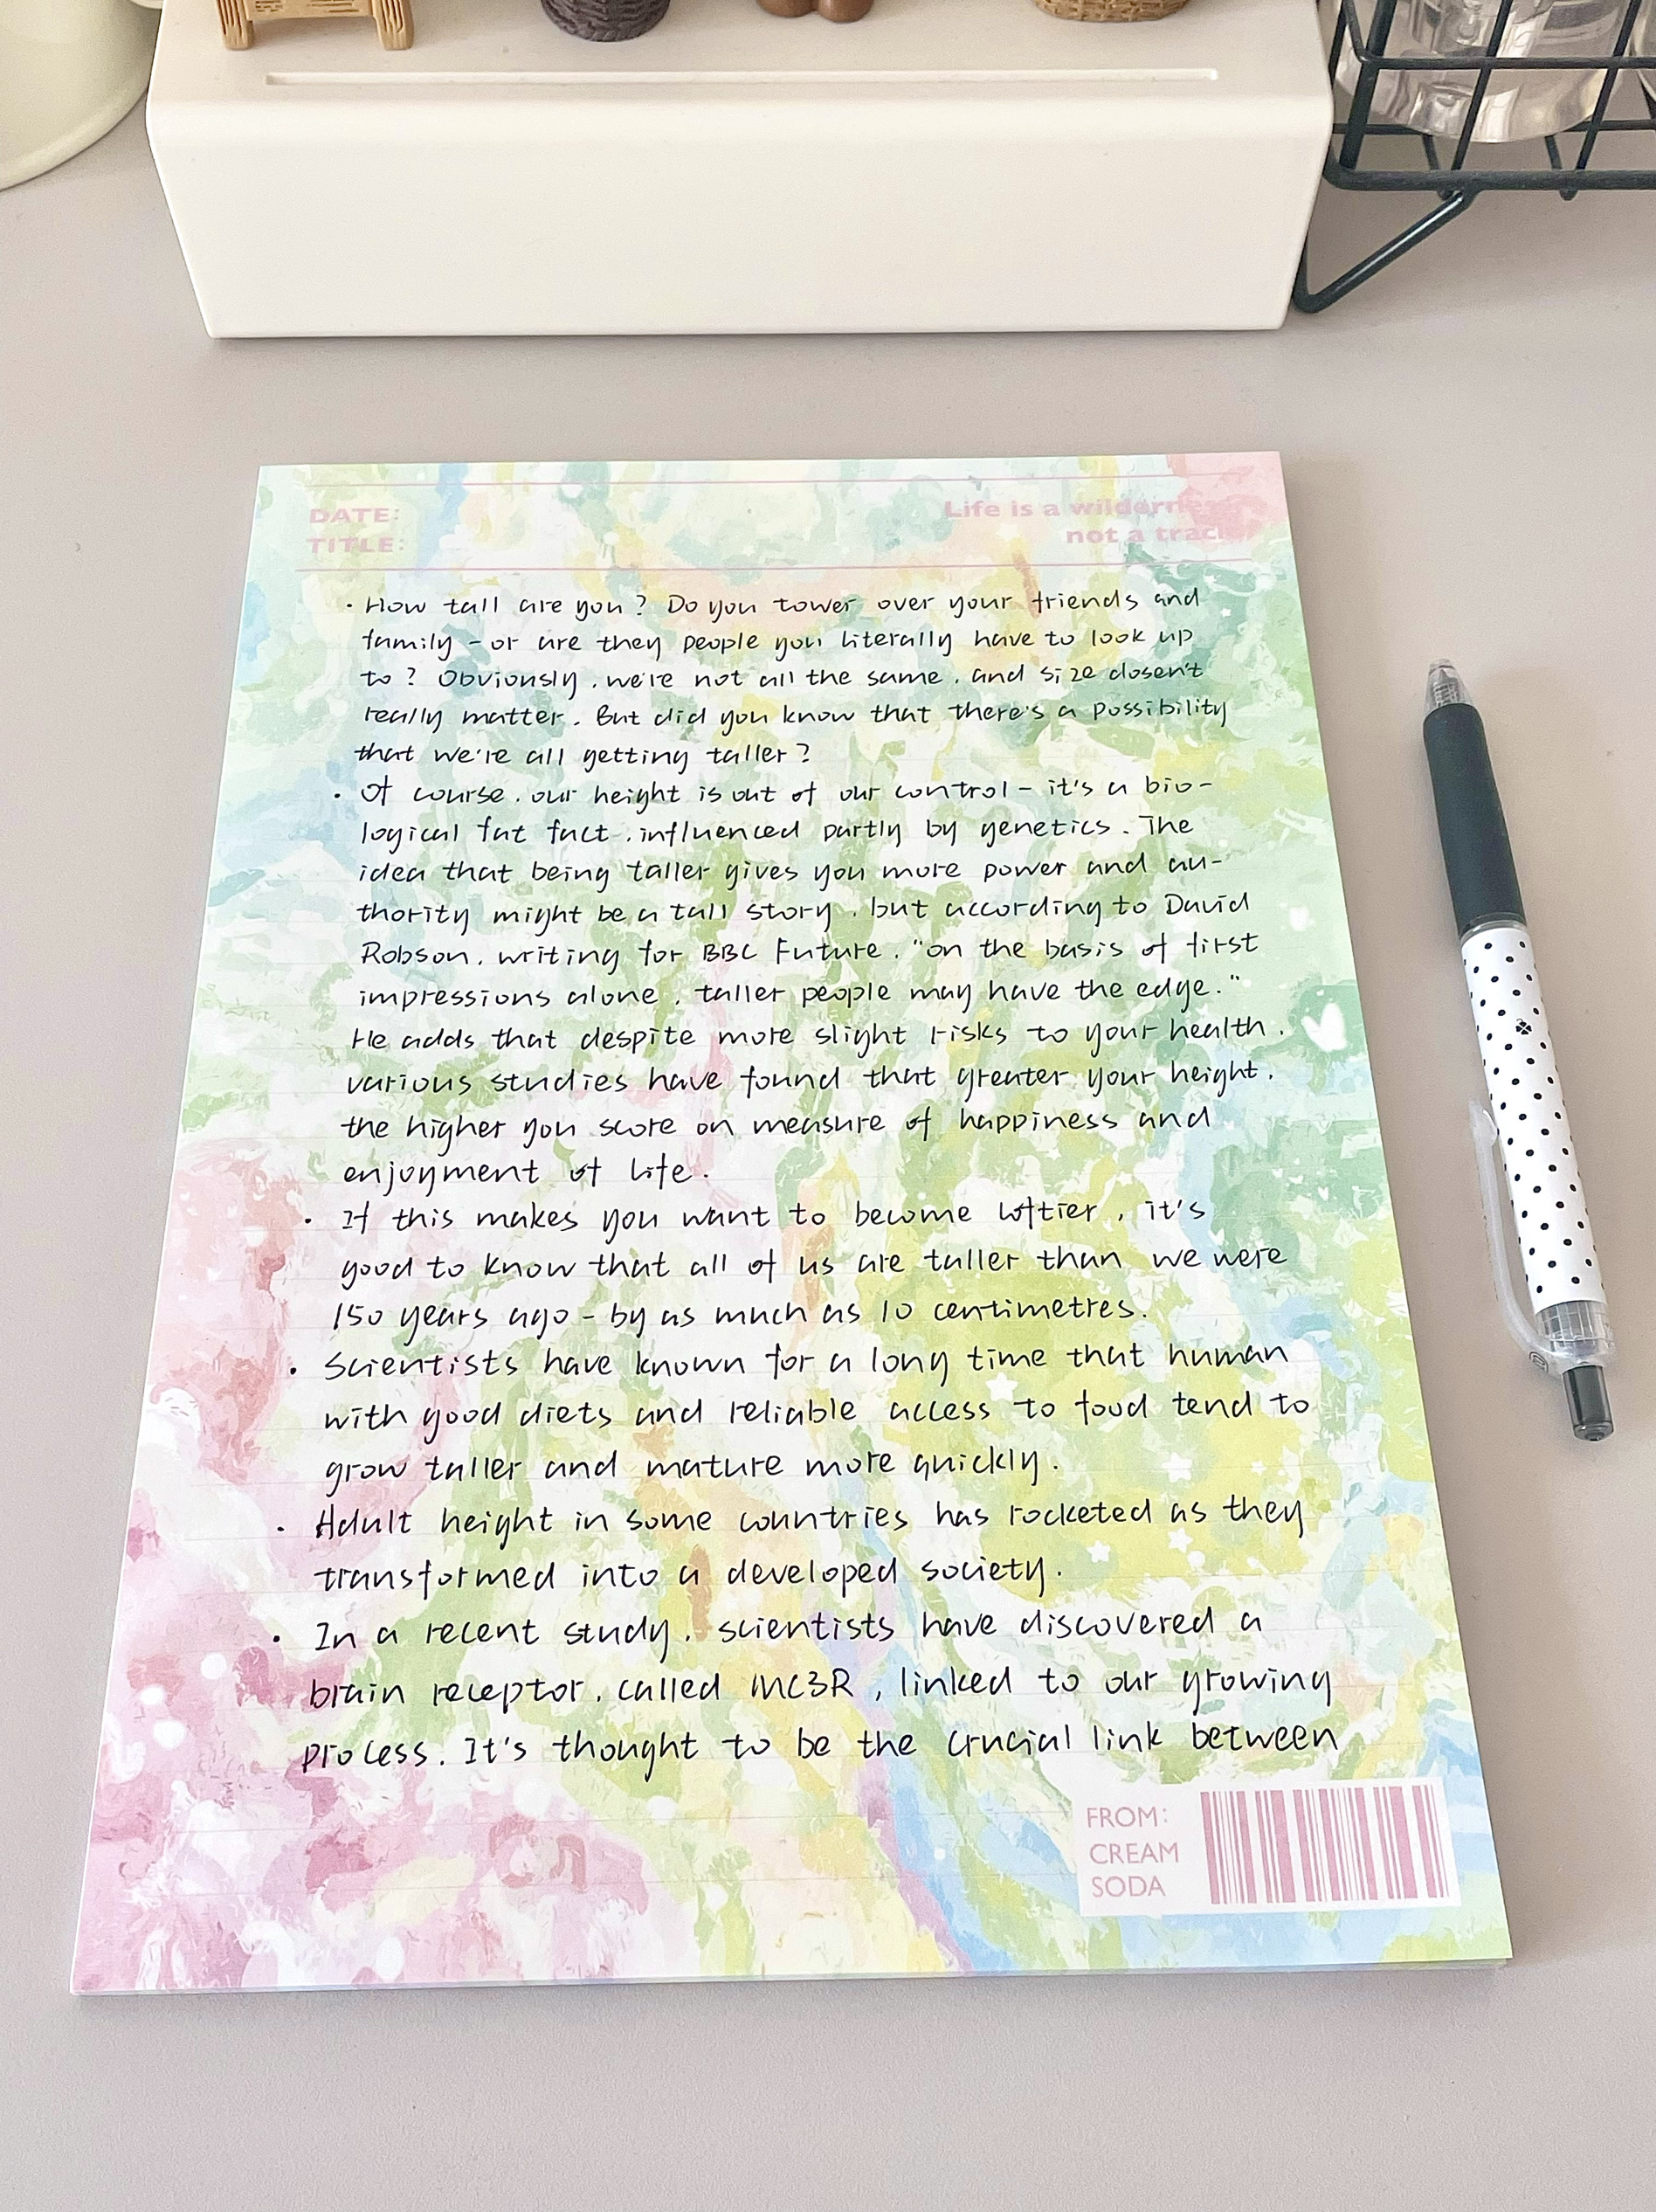 DATE:
TITLE:
Life is a wilderne
not a track
· How tall are you? Do you tower over your friends and
family - or are they people you literally have to look up
to? Obviously, we're not all the same, and size dosen't
really matter. But did you know that there's a possibility
that we're all getting taller?
· Of course, our height is out of our control - it's a bio-
logical fat fact, influenced partly by genetics. The
idea that being taller gives you more power and au-
thority might be a tall story, but according to David
Robson, writing for BBC Future, "on the basis of first
impressions alone, taller people may have the edge."
He adds that despite more slight risks to your health,
various studies have found that greater your height,
the higher you score on measure of happiness and
enjoyment of life.
· If this makes you want to become loftier, it's
good to know that all of us are taller than we were
150 years ago - by as much as 10 centimetres.
· Scientists have known for a long time that human
with good diets and reliable access to food tend to
grow taller and mature more quickly.
· Adult height in some countries has rocketed as they
transformed into a developed society.
· In a recent study, scientists have discovered a
brain receptor, called MC3R, linked to our growing
process. It's thought to be the crucial link between
FROM:
CREAM
SODA